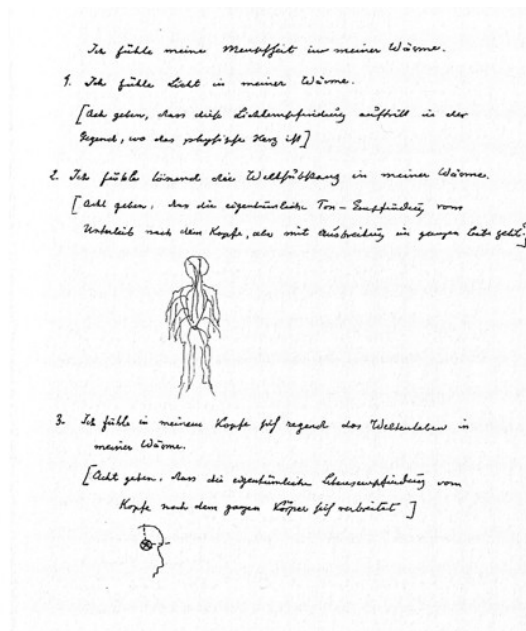 Ich fühle meine Menschheit in meiner Wärme.
1. Ich fühle Licht in meiner Wärme.
[Acht geben, dass diese Lichtempfindung auftritt in der
Gegend, wo das physische Herz ist]
2. Ich fühle tönend die Weltsubstanz in meiner Wärme.
[Acht geben, dass die eigentümliche Ton-Empfindung vom
Unterleib nach dem Kopfe, aber mit Ausbreitung im ganzen Leibe geht.]
3. Ich fühle in meinem Kopfe sich regend das Weltenleben in
meiner Wärme.
[Acht geben, dass die eigentümliche Lebensempfindung vom
Kopfe nach dem ganzen Körper sich verbreitet]